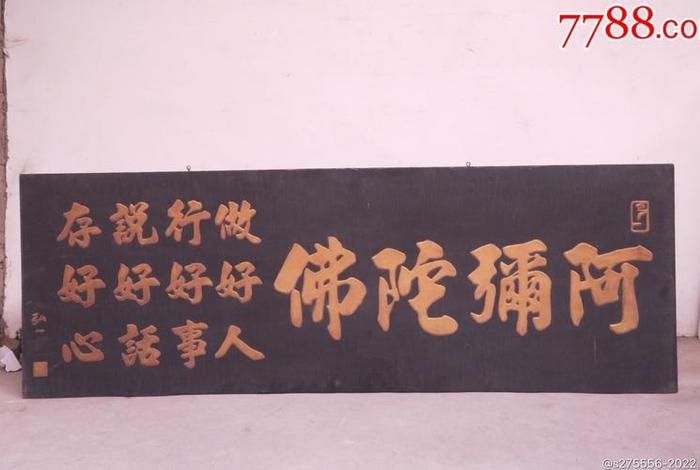 7788.co
阿彌陀佛
做好人
行好事
說好話
存好心
弘一
@s275556-2022